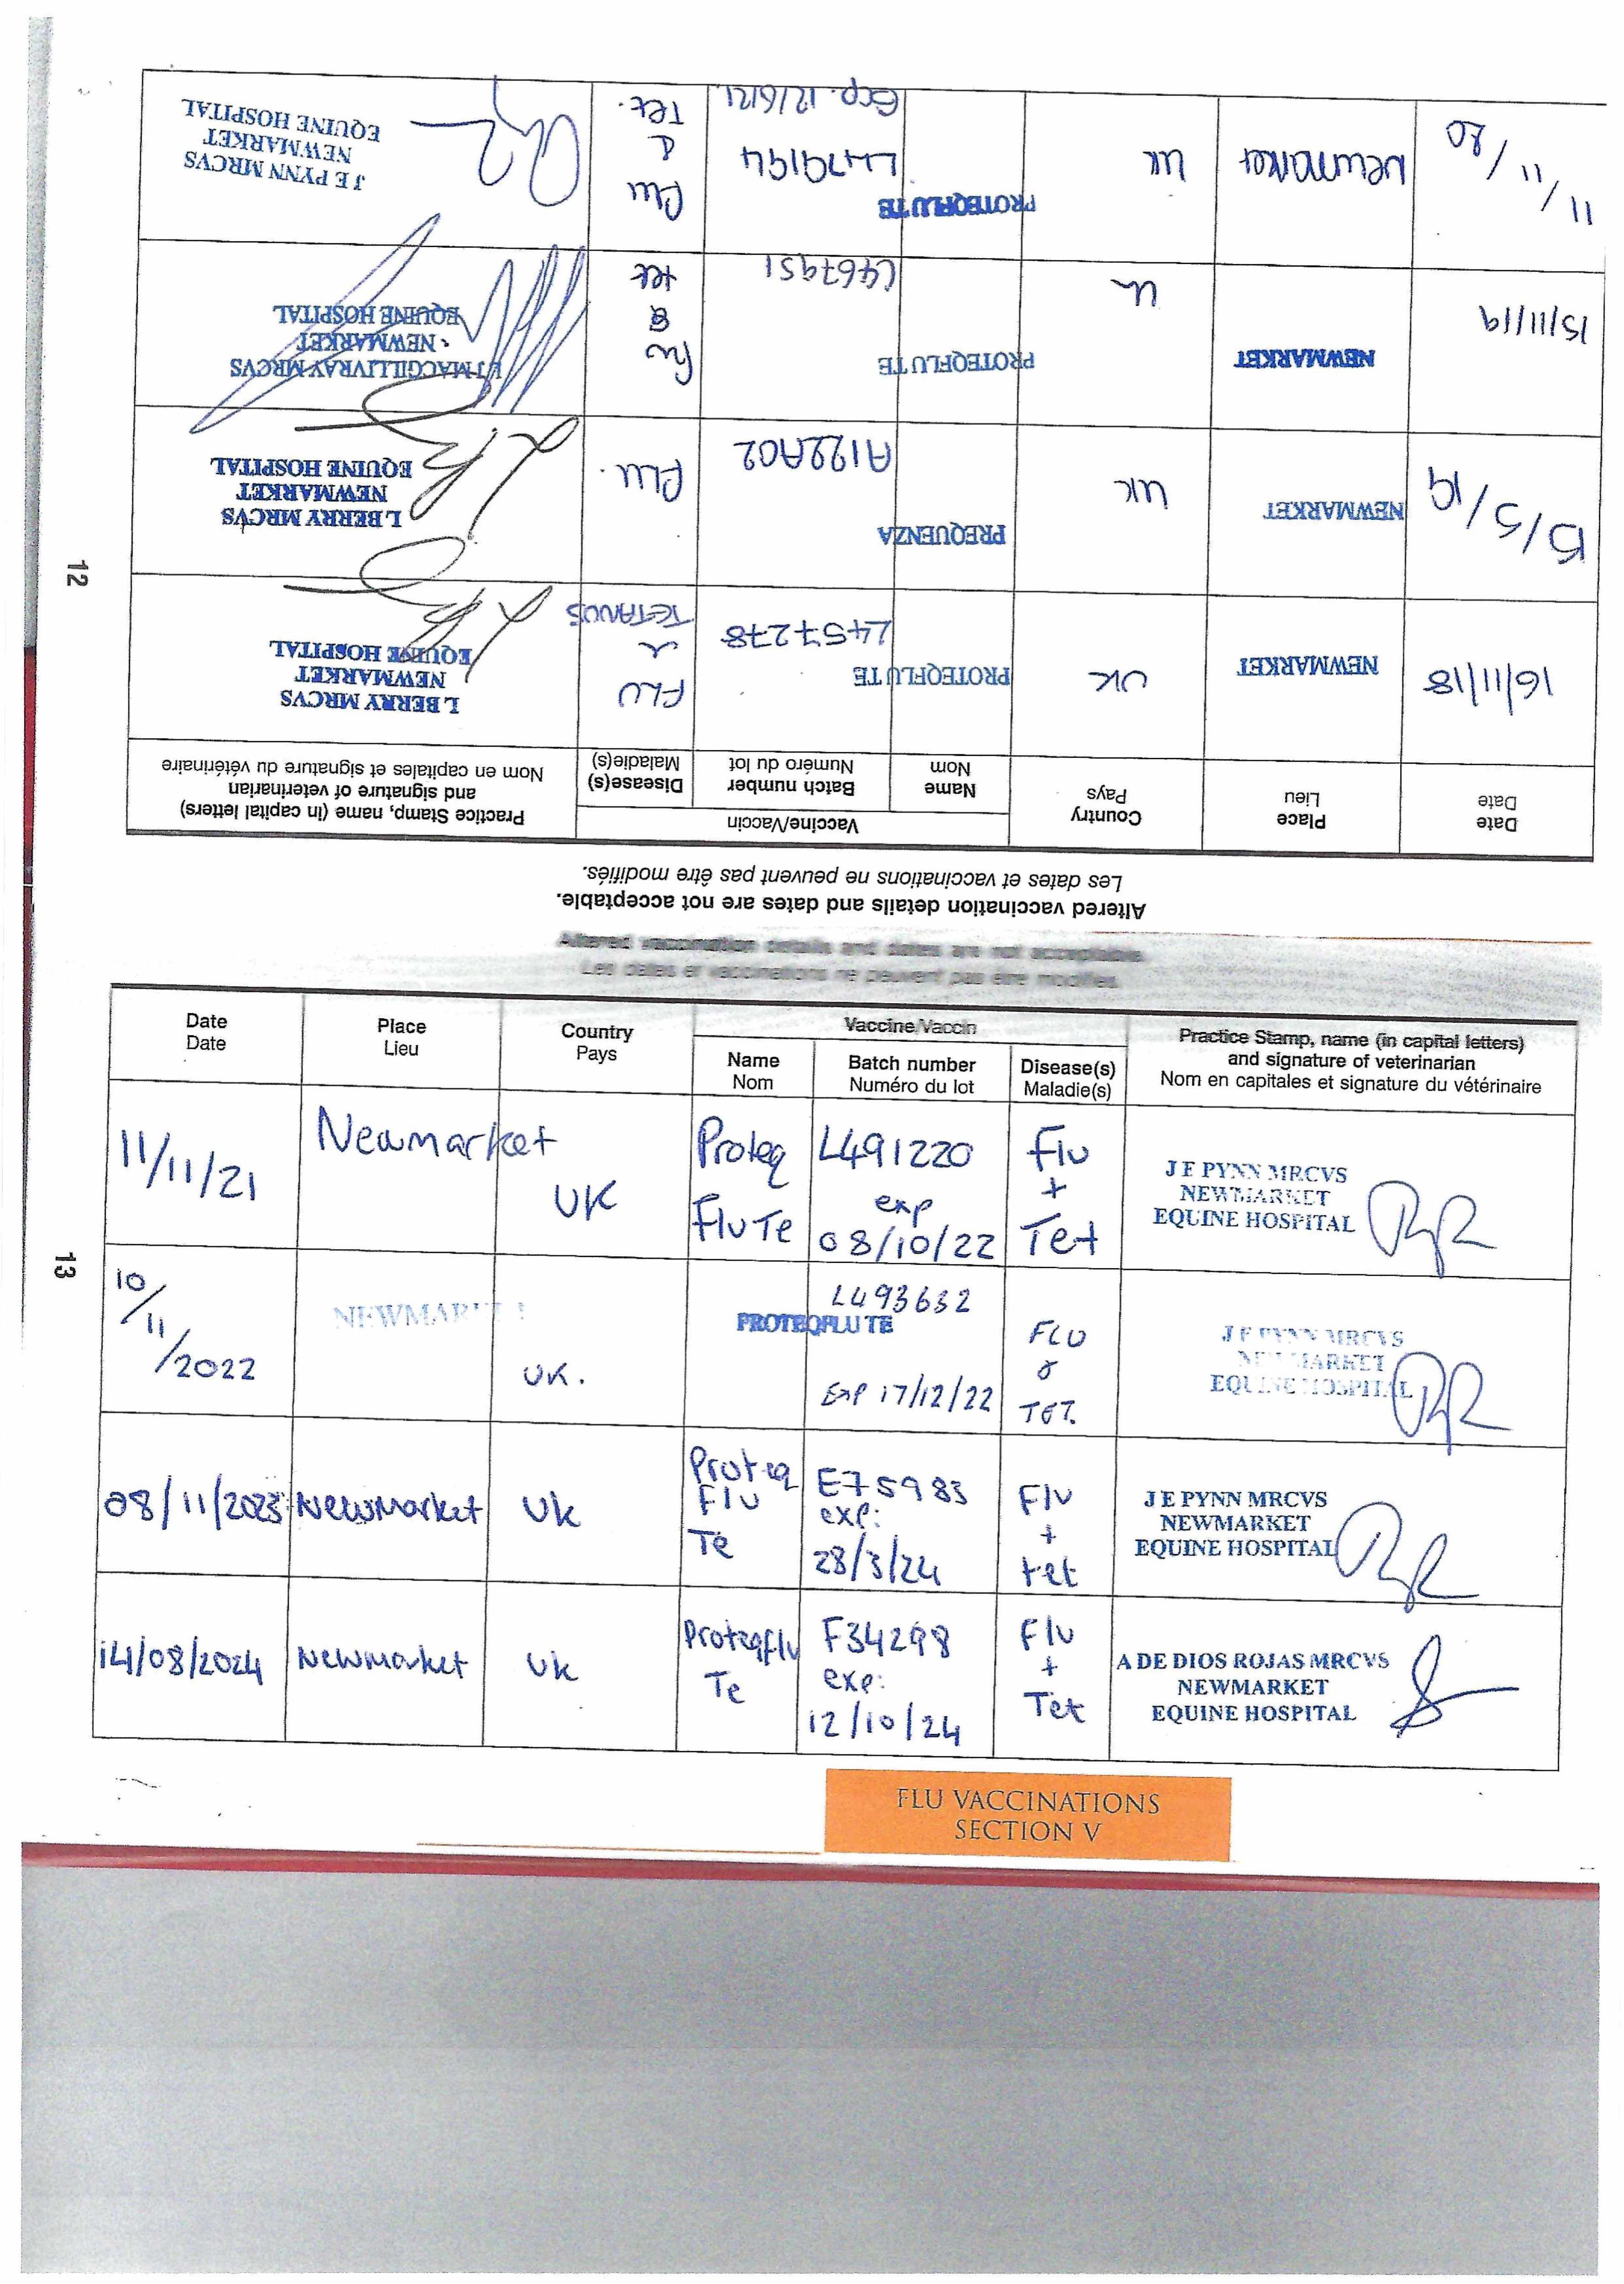 12
Altered vaccination details and dates are not acceptable.
Les dates et vaccinations ne peuvent pas être modifiés.
Date Place Country Vaccine/Vaccin Practice Stamp, name (in capital letters)
Date Lieu Pays Name Batch number Disease(s) and signature of veterinarian
Nom Numéro du lot Maladie(s) Nom en capitales et signature du vétérinaire
16/11/18 NEWMARKET UK PROTEQFLU TE L457278 FLU & TETANUS
L BERRY MRCVS
NEWMARKET
EQUINE HOSPITAL
15/5/19 NEWMARKET UK PREQUENZA A122A02 FLU.
L BERRY MRCVS
NEWMARKET
EQUINE HOSPITAL
15/11/19 NEWMARKET PROTEQFLU TE L467951 Flu & tet
L J MACGILLIVRAY MRCVS
NEWMARKET
EQUINE HOSPITAL
11/11/20 Newmarket UK PROTEQFLU TE L479194 Flu & Tet.
Exp. 12/6/21.
J E PYNN MRCVS
NEWMARKET
EQUINE HOSPITAL
13
Altered vaccination details and dates are not acceptable.
Les dates et vaccinations ne peuvent pas être modifiés.
Date Place Country Vaccine/Vaccin Practice Stamp, name (in capital letters)
Date Lieu Pays Name Batch number Disease(s) and signature of veterinarian
Nom Numéro du lot Maladie(s) Nom en capitales et signature du vétérinaire
11/11/21 Newmarket UK Proteq Flu Te L491220 Flu + Tet
exp
08/10/22
J E PYNN MRCVS
NEWMARKET
EQUINE HOSPITAL
10/11/2022 NEWMARKET UK. PROTEQFLU TE L493632 FLU & TET.
EXP 17/12/22
J E PYNN MRCVS
NEWMARKET
EQUINE HOSPITAL
08/11/2023 Newmarket Uk Proteq Flu Te E75983 Flu + tet
exp:
28/3/24
J E PYNN MRCVS
NEWMARKET
EQUINE HOSPITAL
14/08/2024 Newmarket Uk Proteqflu Te F34298 Flu + Tet
exp:
12/10/24
A DE DIOS ROJAS MRCVS
NEWMARKET
EQUINE HOSPITAL
FLU VACCINATIONS
SECTION V